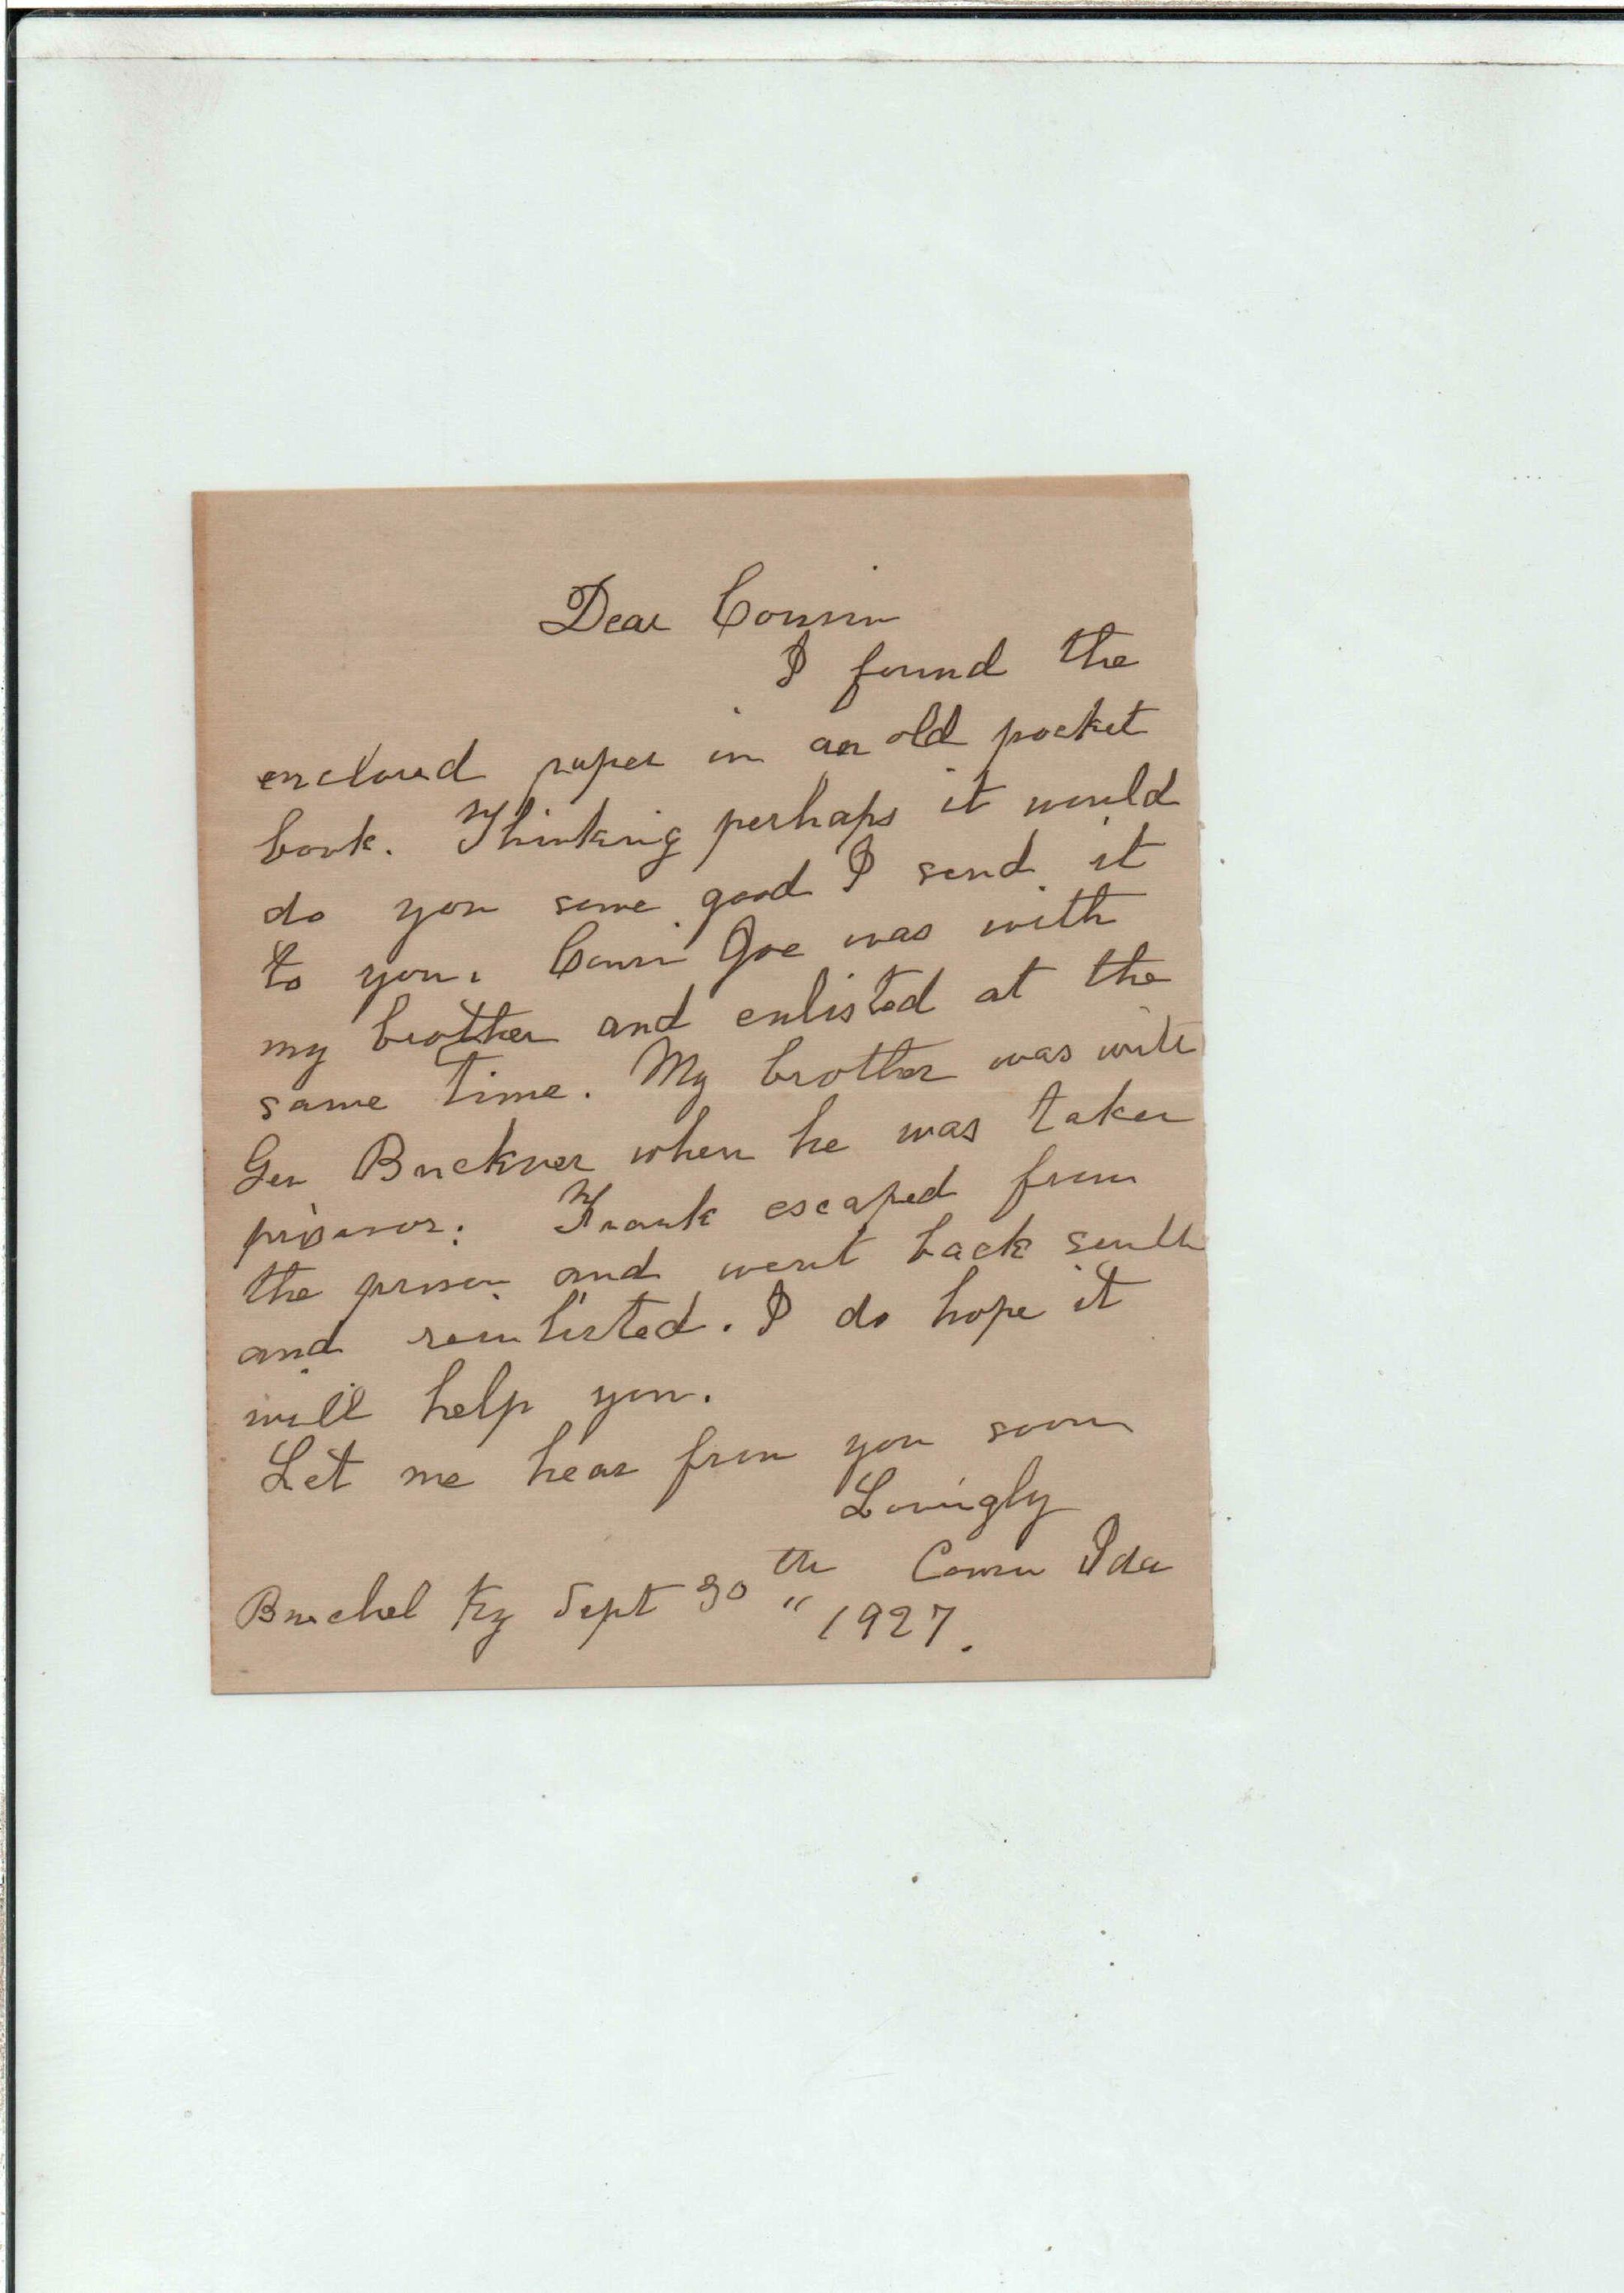 Dear Cousin
I found the
enclosed paper in an old pocket
book. Thinking perhaps it would
do you some good I send it
to you. Cousin Joe was with
my brother and enlisted at the
same time. My brother was with
Gen Buckner when he was taken
prisoner. Frank escaped from
the prison and went back south
and reinlisted. I do hope it
will help you.
Let me hear from you soon
Lovingly
Cousin Ida
Buechel Ky Sept 30th 1927.